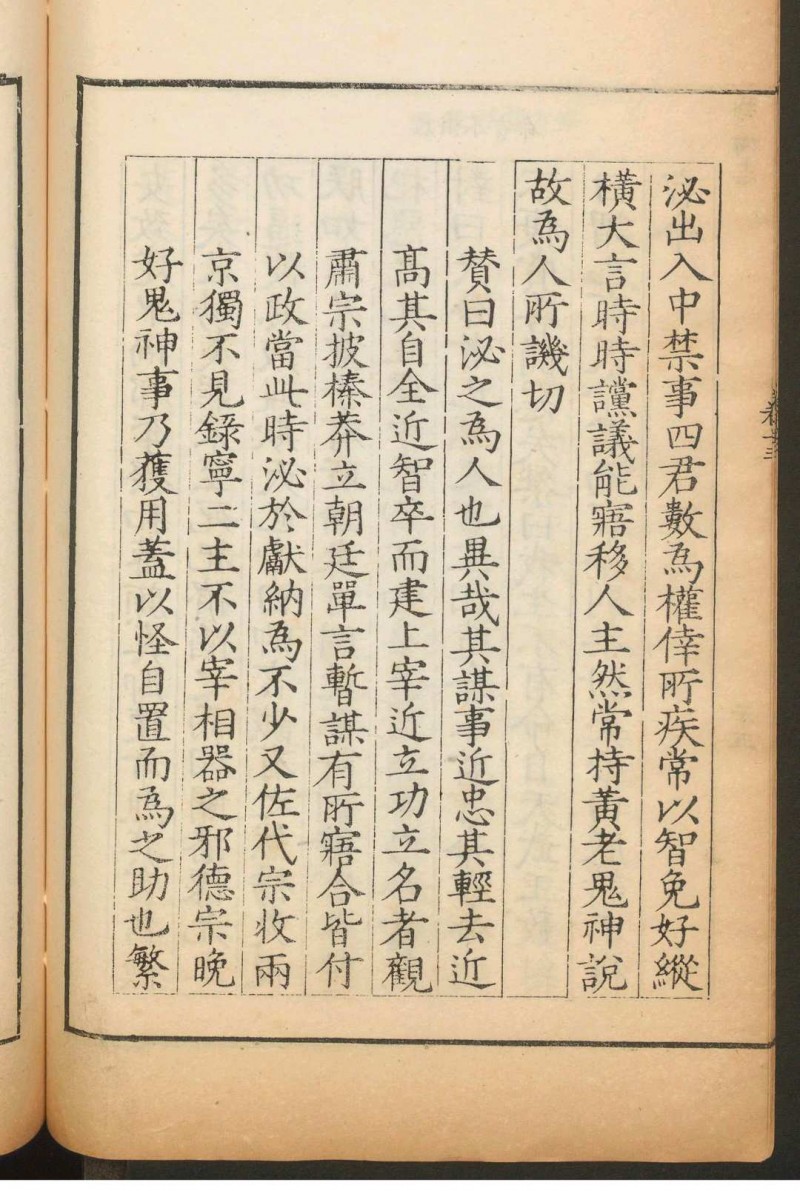 泌出入中禁事四君數為權倖所疾常以智免好縱
橫大言時時讜議能寤移人主然常持黃老鬼神說
故為人所譏切
贊曰泌之為人也異哉其謀事近忠其輕去近
高其自全近智卒而建上宰近立功立名者觀
肅宗披榛莽立朝廷單言暫謀有所寤合皆付
以政當此時泌於獻納為不少又佐代宗收兩
京獨不見錄寧二主不以宰相器之邪德宗晚
好鬼神事乃獲用蓋以怪自置而為之助也繁